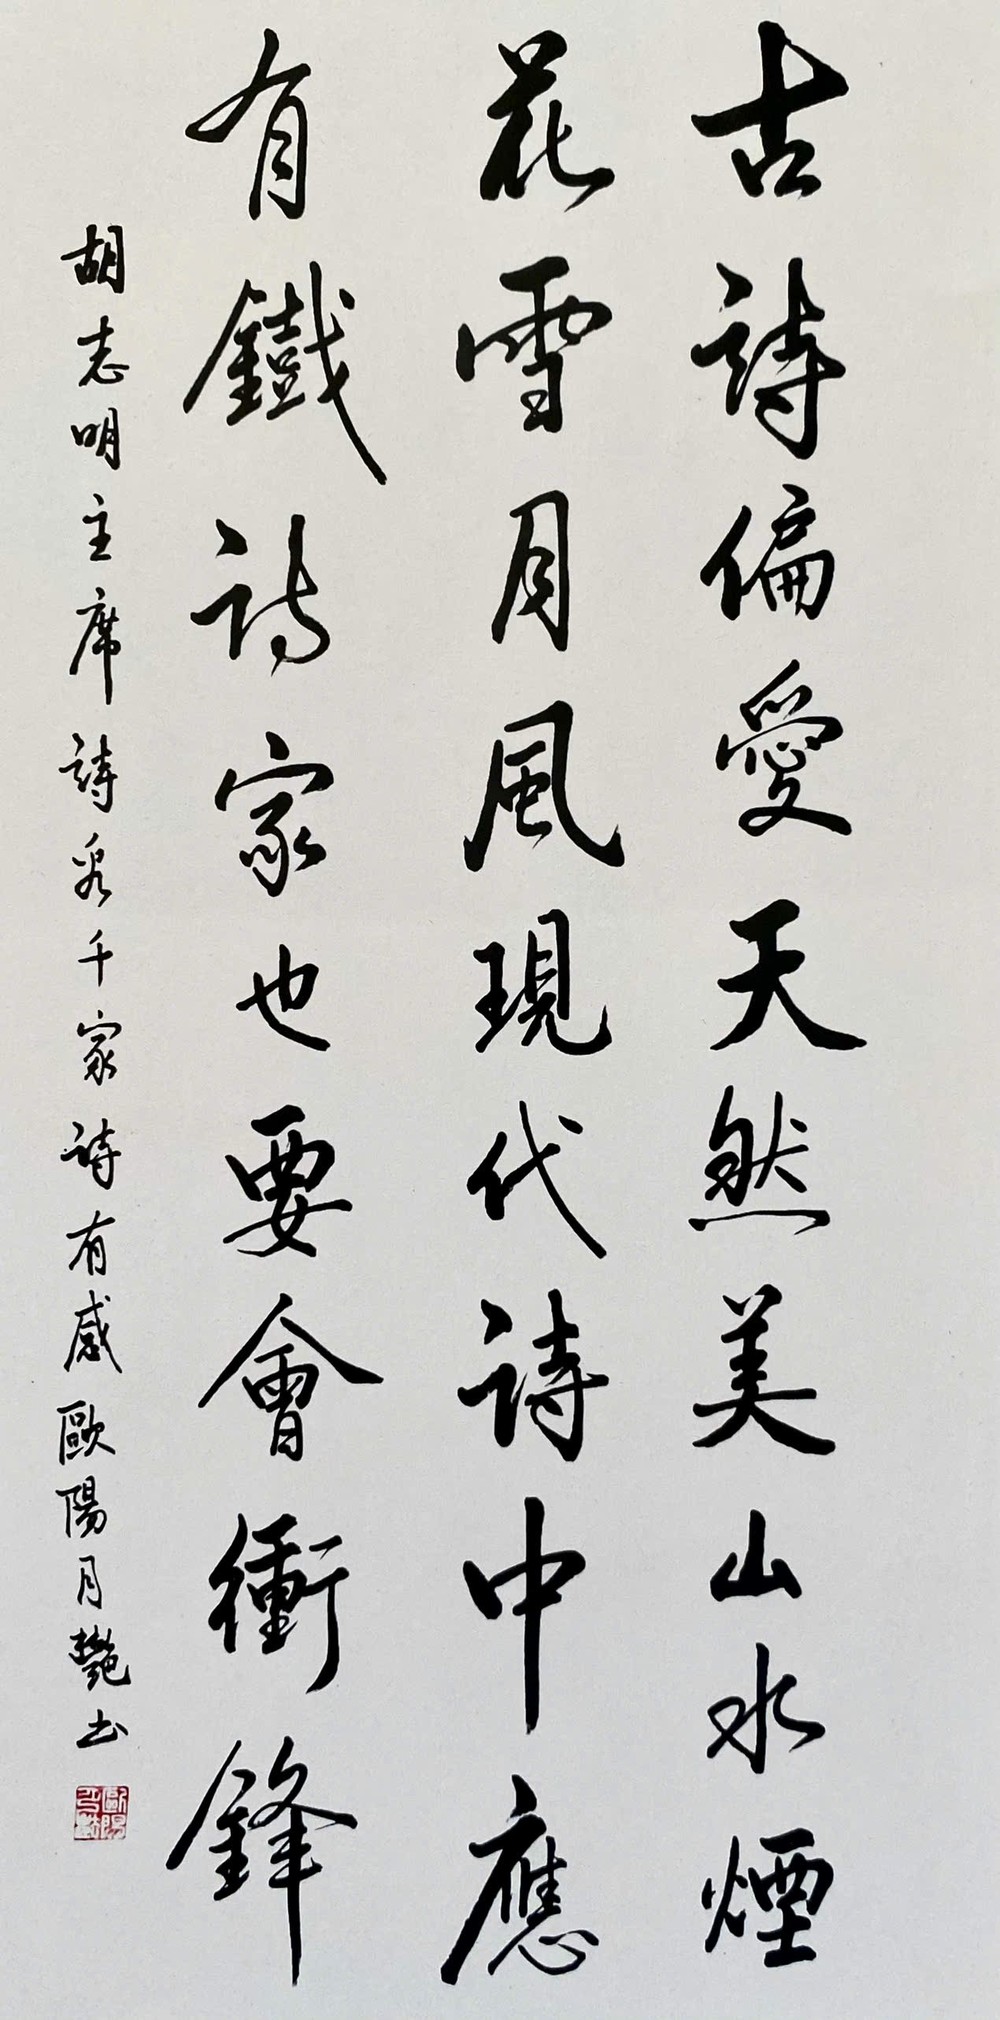 古詩偏愛天然美山水煙
花雪月風現代詩中應
有鐵詩家也要會衝鋒
胡志明主席詩看千家詩有感歐陽月艷书